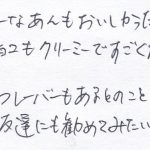 ーなあんもおいしかった
コもクリーミーですごく
フレーバーもあるとのこと
友達にも勧めてみたい